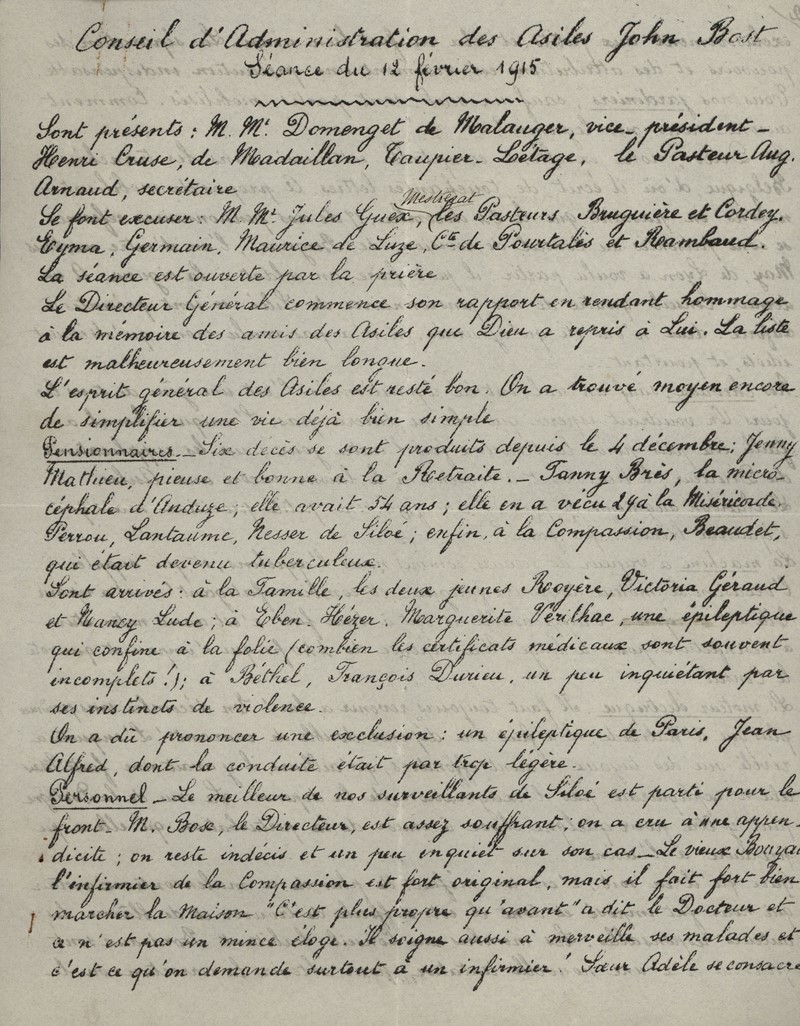 Conseil d'Administration des Asiles John Bost
Séance du 12 février 1915
Sont présents : M. Mrs Domenget de Malauger, vice-président -
Henri Cruse, de Madaillan, Taupier-Loëtage, le Pasteur Aug.
Arnaud, secrétaire
Mestrezat
Se font excuser : M. Mrs Jules Guex, les Pasteurs Bruguière et Cordey,
Eyma, Germain, Maurice de Luze, Cte de Pourtalès et Rambaud.
La séance est ouverte par la prière
Le Directeur Général commence son rapport en rendant hommage
à la mémoire des amis des Asiles que Dieu a repris à Lui. La liste
est malheureusement bien longue.
L'esprit général des Asiles est resté bon. On a trouvé moyen encore
de simplifier une vie déjà bien simple
Pensionnaires - Six décès se sont produits depuis le 4 décembre ; Jenny
Mathieu, pieuse et bonne à la Retraite. - Fanny Brès, la micro-
céphale d'Anduze ; elle avait 54 ans ; elle en a vécu 29 à la Miséricorde.
Perrou, Lantaume, Nesser de Siloé ; enfin, à la Compassion, Beaudet,
qui était devenu tuberculeux.
Sont arrivés : à la Famille, les deux jeunes Royère, Victoria Géraud
et Nancy Lude ; à Eben-Hézer, Marguerite Vérithac, une épileptique
qui confine à la folie (combien les certificats médicaux sont souvent
incomplets !) ; à Béthel, François Durieu, un peu inquiétant par
ses instincts de violence.
On a dû prononcer une exclusion : un épileptique de Paris, Jean
Alfred, dont la conduite était par trop légère.
Personnel - Le meilleur de nos surveillants de Siloé est parti pour le
front - M. Bost, le Directeur, est assez souffrant ; on a cru à une appen-
dicite ; on reste indécis et un peu inquiet sur son cas - Le vieux
l'infirmier de la Compassion est fort original, mais il fait fort bien
marcher la Maison "C'est plus propre qu'avant" a dit le Docteur et
ce n'est pas un mince éloge. Il soigne aussi à merveille ses malades et
c'est ce qu'on demande surtout à un infirmier ! Sœur Adèle se consacre